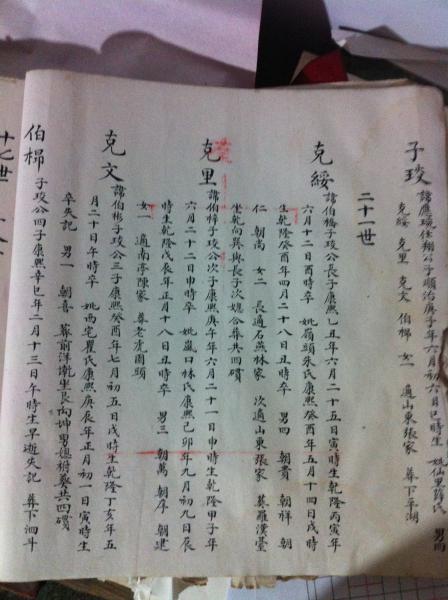 子珓
諱應瑞仕翔公子順治庚子年六月初六日巳時生 妣仙里 氏 男四
克綏 克里 克文 伯梆 女一 適山東張家 葬下平湖
二十一世
克綏
諱伯橋子珓公長子康熙乙丑年六月二十五日寅時生乾隆丙寅年
六月十二日酉時卒 妣嶺頭朱氏康熙癸酉年五月十四日戌時
生乾隆癸酉年四月二十八日丑時卒 男四 朝貴 朝祥 朝
仁 朝尚 女二 長適石燕林家 次適山東張家 葬羅漢臺
坐乾向巽與長子次媳合葬共四礦
克里
諱伯梓子珓公次子康熙庚午年六月二十一日申時生乾隆甲子年
六月二十二日申時卒 妣嵐口林氏康熙己卯年九月初九日辰
時生乾隆戊辰年正月十八日丑時卒 男三 朝萬 朝序 朝建
女一 適南亭陳家 葬老虎圈頭
克文
諱伯彬子珓公三子康熙癸酉年七月初五日戌時生乾隆丁亥年五
月二十日午時卒 妣西宅瞿氏康熙庚辰年正月初一日寅時生
卒失記 男一 朝喜 葬前洋 坐艮向坤男媳祔葬共四礦
伯梆
子珓公四子康熙辛巳年二月十三日午時生早逝失記 葬下泗斗
十七世